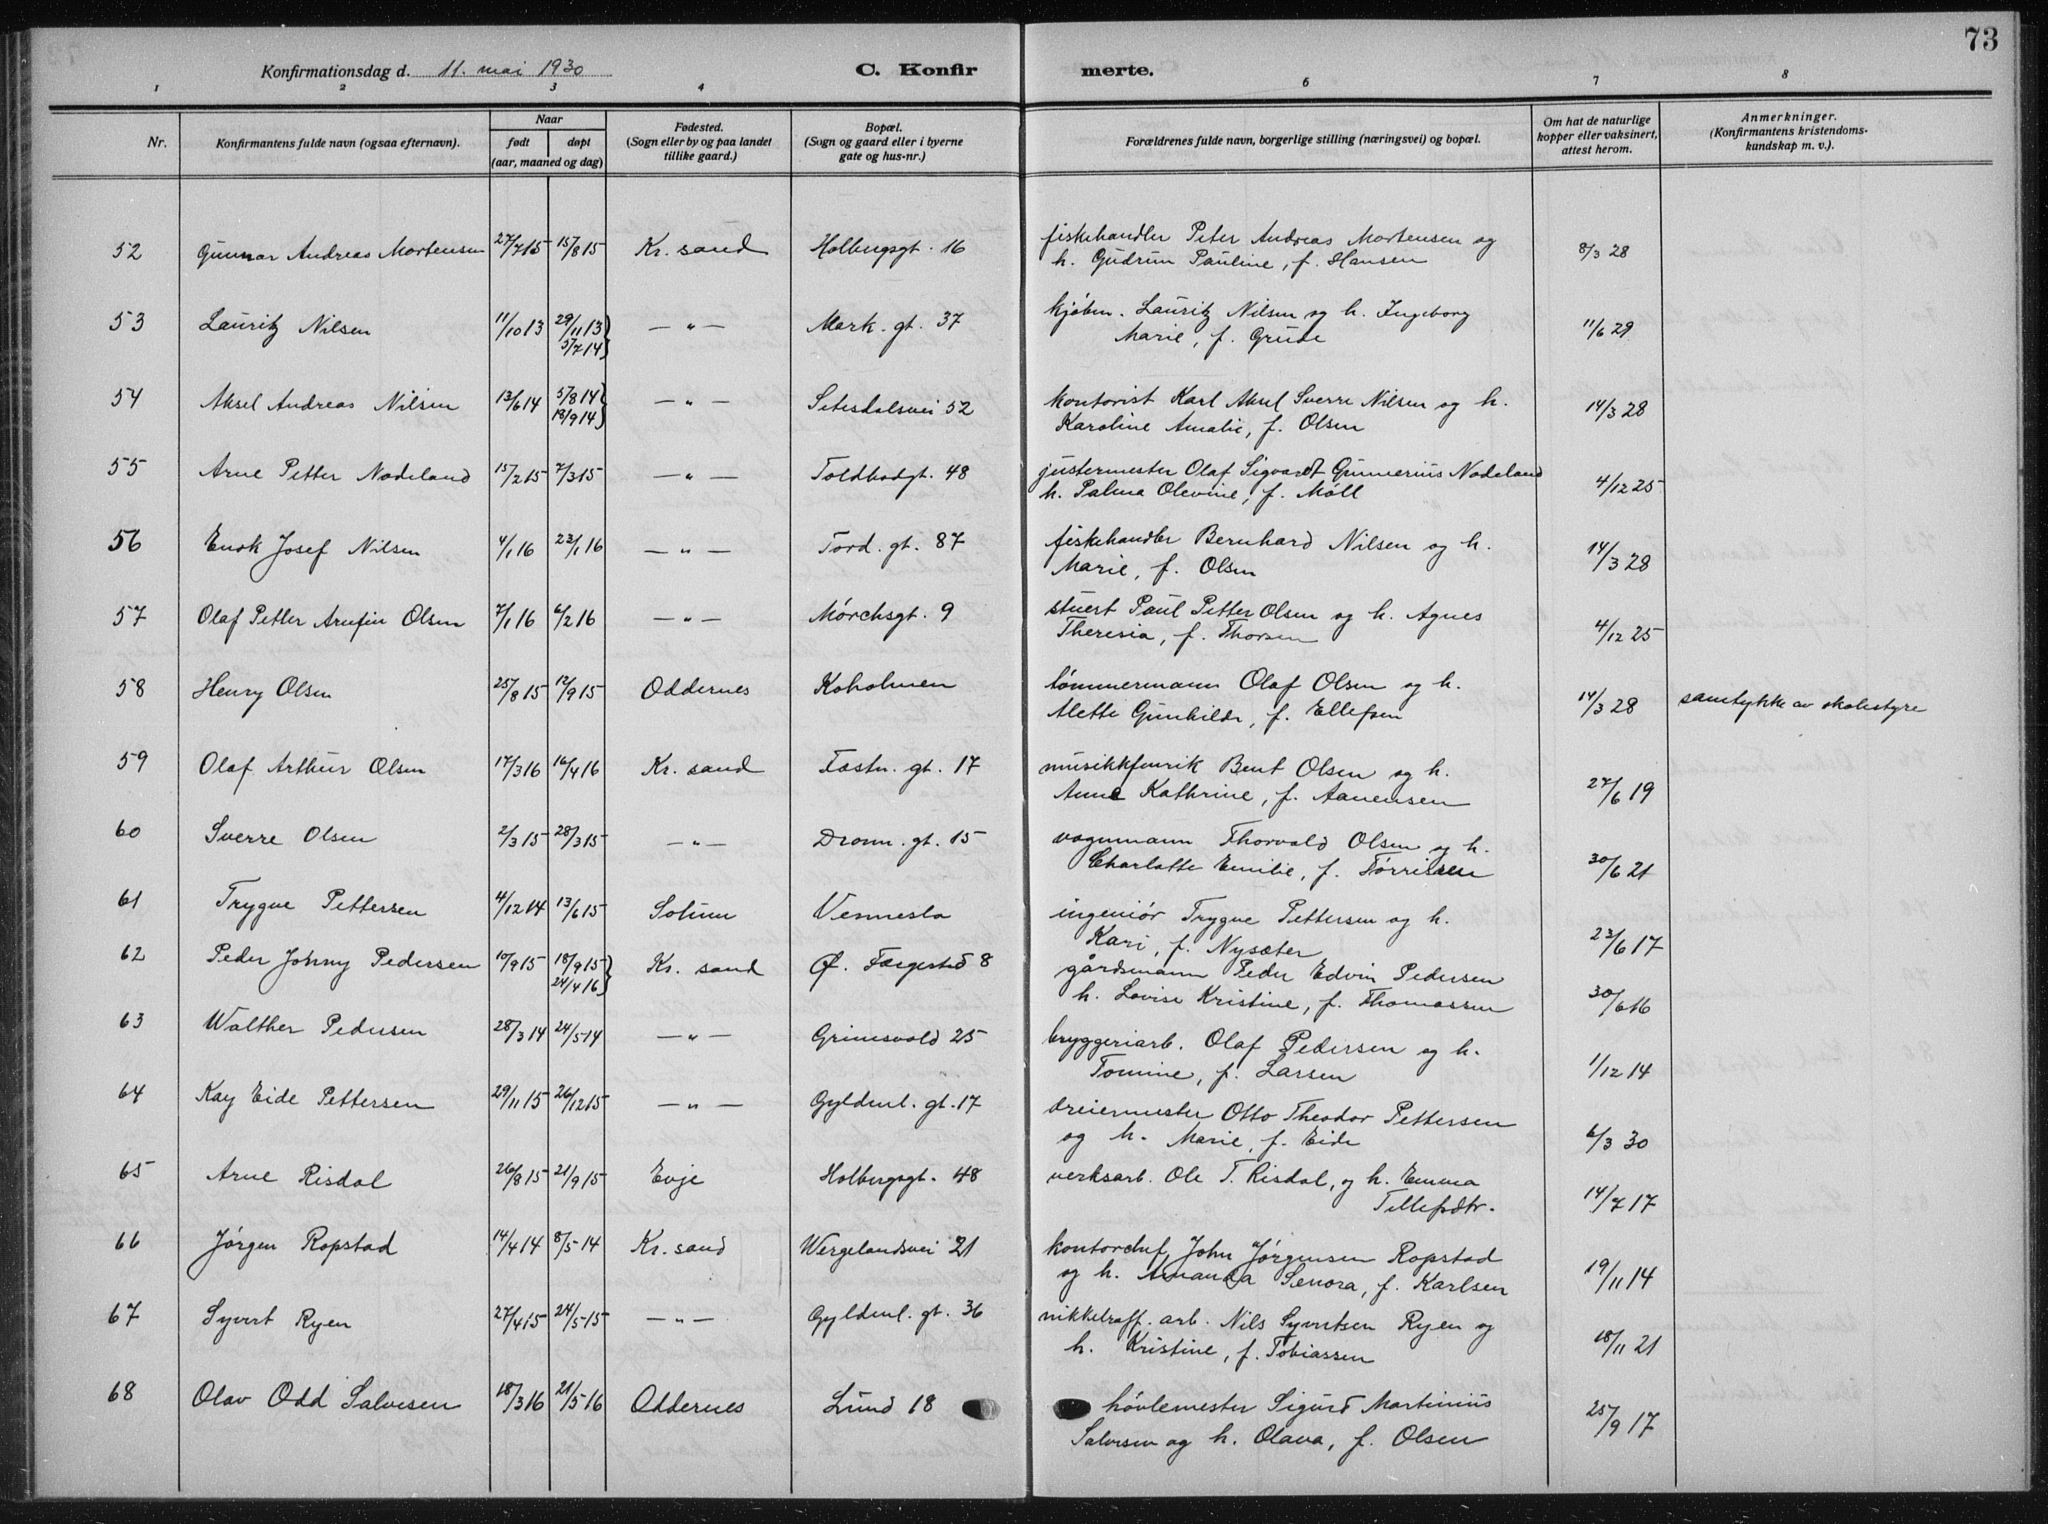 73
Konfirmationsdag d. 11. mai 1930 C. Konfir merte.
1 2 3 4 6 7 8
Nr.
Konfirmantens fulde navn (ogsaa efternavn).
Naar
født døpt
(aar, maaned og dag)
Fødested.
(Sogn eller by og paa landet
tillike gaard.)
Bopæl.
(Sogn og gaard eller i byerne
gate og hus-nr.)
Forældrenes fulde navn, borgerlige stilling (næringsvei) og bopæl.
Om hat de naturlige
kopper eller vaksinert,
attest herom.
Anmerkninger.
(Konfirmantens kristendoms-
kundskap m. v.).
52 Gunnar Andreas Mortensen 27/7 15 15/8 15 Kr. sand Holbergsgt. 16 fiskehandler Peter Andreas Mortensen og 8/3 28
h. Gudrun Pauline, f. Hansen
53 Lauritz Nilsen 11/10 13 29/11 13 } — " — Mark. gt. 37 kjøbm. Lauritz Nilsen og h. Ingeborg 11/6 29
5/7 14 } Marie, f. Grude
54 Aksel Andreas Nilsen 13/6 14 5/8 14 } — " — Setesdalsvei 52 kontorist Karl Aksel Sverre Nilsen og h. 14/3 28
13/9 14 } Karoline Amalie, f. Olsen
55 Arne Petter Nodeland 15/2 15 7/3 15 — " — Toldbodgt. 48 justermester Olaf Sigvardt Gunnerius Nodeland 4/12 25
h. Palma Olevine, f. Möll
56 Enok Josef Nilsen 4/1 16 23/1 16 — " — Tord. gt. 87 fiskehandler Bernhard Nilsen og h. 14/3 28
Marie, f. Olsen
57 Olaf Petter Arnfin Olsen 7/1 16 6/2 16 — " — Mörchsgt. 9 stuert Paul Petter Olsen og h. Agnes 4/12 25
Theresia, f. Thorsen
58 Henry Olsen 25/8 15 12/9 15 Oddernes Koholmen tömmermann Olaf Olsen og h. 14/3 28 samtykke av skolestyre
Alette Gunhilde, f. Ellefsen
59 Olaf Arthur Olsen 17/3 16 16/4 16 Kr. sand Fastn. gt. 17 musikkfenrik Bent Olsen og h. 27/6 19
Anne Kathrine, f. Aanensen
60 Sverre Olsen 2/3 15 28/3 15 — " — Dronn. gt. 15 vognmann Thorvald Olsen og h. 30/6 21
Charlotte Emilie, f. Tørrisen
61 Trygve Pettersen 4/12 14 13/6 15 Solum Vennesla ingeniör Trygve Pettersen og h. 23/6 17
Kari, f. Nysæter
62 Peder Johnny Pedersen 10/9 15 18/9 15 } Kr. sand Ø. Færgested 8 gårdsmann Peder Edvin Pedersen 30/6 16
24/4 16 } h. Lovise Kristine, f. Thomassen
63 Walther Pedersen 28/3 14 24/5 14 — " — Grimsvold 25 bryggeriarb. Olaf Pedersen og h. 1/12 14
Tomine, f. Larsen
64 Kay Eide Pettersen 29/11 15 26/12 15 — " — Gyldenl. gt. 17 dreiermester Otto Theodor Pettersen 6/3 30
og h. Marie, f. Eide
65 Arne Risdal 26/8 15 21/9 15 Evje Holbergsgt. 48 verksarb. Ole T. Risdal, og h. Emma 14/7 17
Tellefsdtr.
66 Jørgen Ropstad 14/4 14 8/5 14 Kr. sand Wergelandsvei 21 kontorchef John Jørgensen Ropstad 19/11 14
og h. Amanda Senora, f. Karlsen
67 Syvert Ryen 27/4 15 24/5 15 — " — Gyldenl. gt. 36 nikkelraff. arb. Nils Syvertsen Ryen og 18/11 21
h. Kristine, f. Tobiassen
68 Olav Odd Salvesen 18/3 16 21/5 16 Oddernes Lund 18 hövlemester Sigurd Martinius 25/9 17
Salvesen og h. Olava, f. Olsen